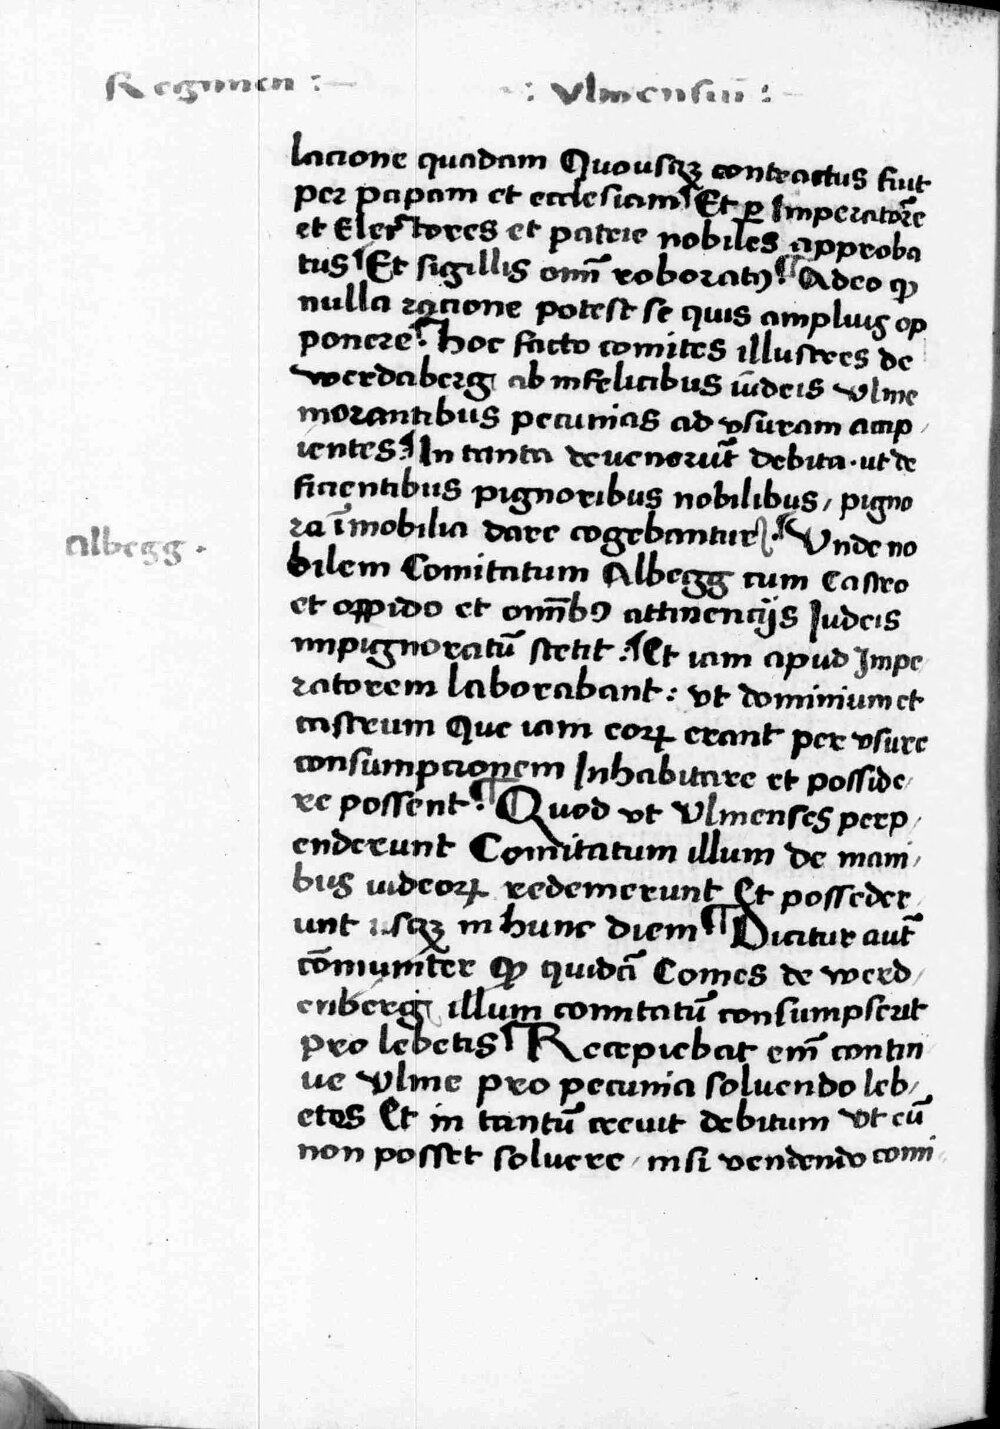 Regimen :
: Vlmensiū :
lacione quadam Quousqꝫ contractus fuit
per papam et ecclesiam ¶ Et ꝑ Imperatorē
et Elec̄tores et patrie nobiles approba
tus ¶ Et sigillis omī roboratꝯ ¶ Adeo ꝙ
nulla racione potest se quis amplius op
ponere ¶ Hoc facto comites illustres de
werdaberg ab infelicibus iūdeis vlme
morantibus pecunias ad vsuram accip /
ientes ¶ In tanta deuenerūt debita . ut de
ficientibus pignoribus nobilibus / pigno
ra īmobilia dare cogebantur ¶ Vnde no
bilem Comitatum Albegg cum Castro
albegg .
et oppido et omībꝯ attinencijs Iudeis
impignoratū stetit ¶ Et iam apud Impe
ratorem laborabant : vt dominium et
castrum Que iam eoꝝ erant per vsure
consumpcionem Inhabitare et posside /
re possent ¶ Quod vt Vlmenses perp /
enderunt Comitatum illum de mani /
bus iudeoꝝ redemerunt Et posseder /
unt usqꝫ in hunc diem ¶ Dicitur aut̄
cōmuniter ꝙ quidā Comes de werd /
enberg illum comitatū consumpserit
pro lebetis ¶ Recepiebat em̄ contin
ue Vlme pro pecunia soluendo leb /
etes Et in tantū creuit debitum vt eū
non posset soluere / nisi vendendo comi /